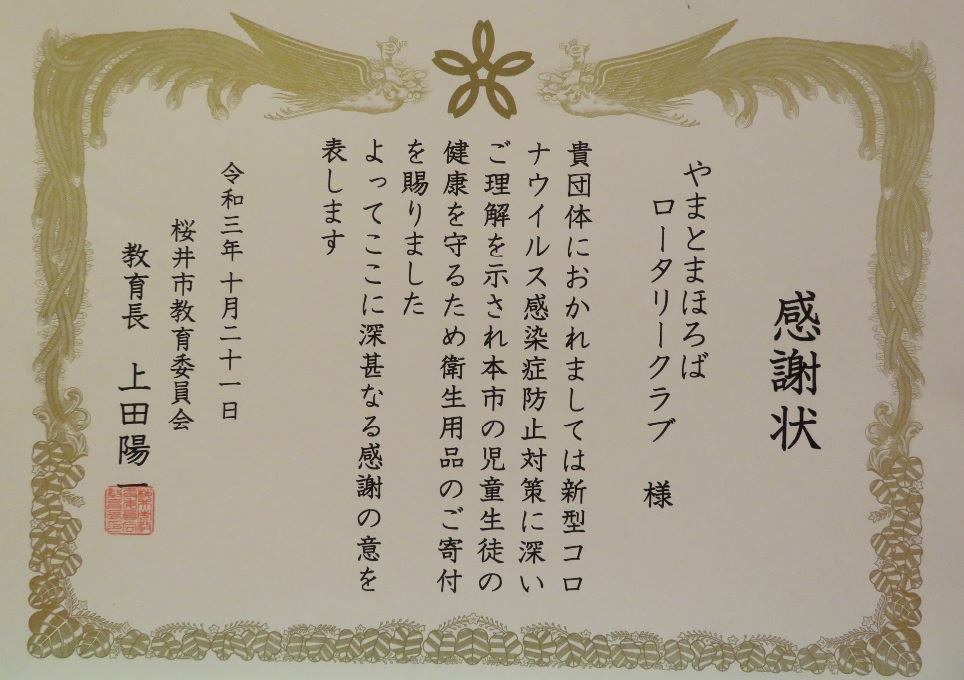 感謝状
やまとまほろば
ロータリークラブ 様
貴団体におかれましては新型コロ
ナウイルス感染症防止対策に深い
ご理解を示され本市の児童生徒の
健康を守るため衛生用品のご寄付
を賜りました
よってここに深甚なる感謝の意を
表します
令和三年十月二十一日
桜井市教育委員会
教育長 上田陽一